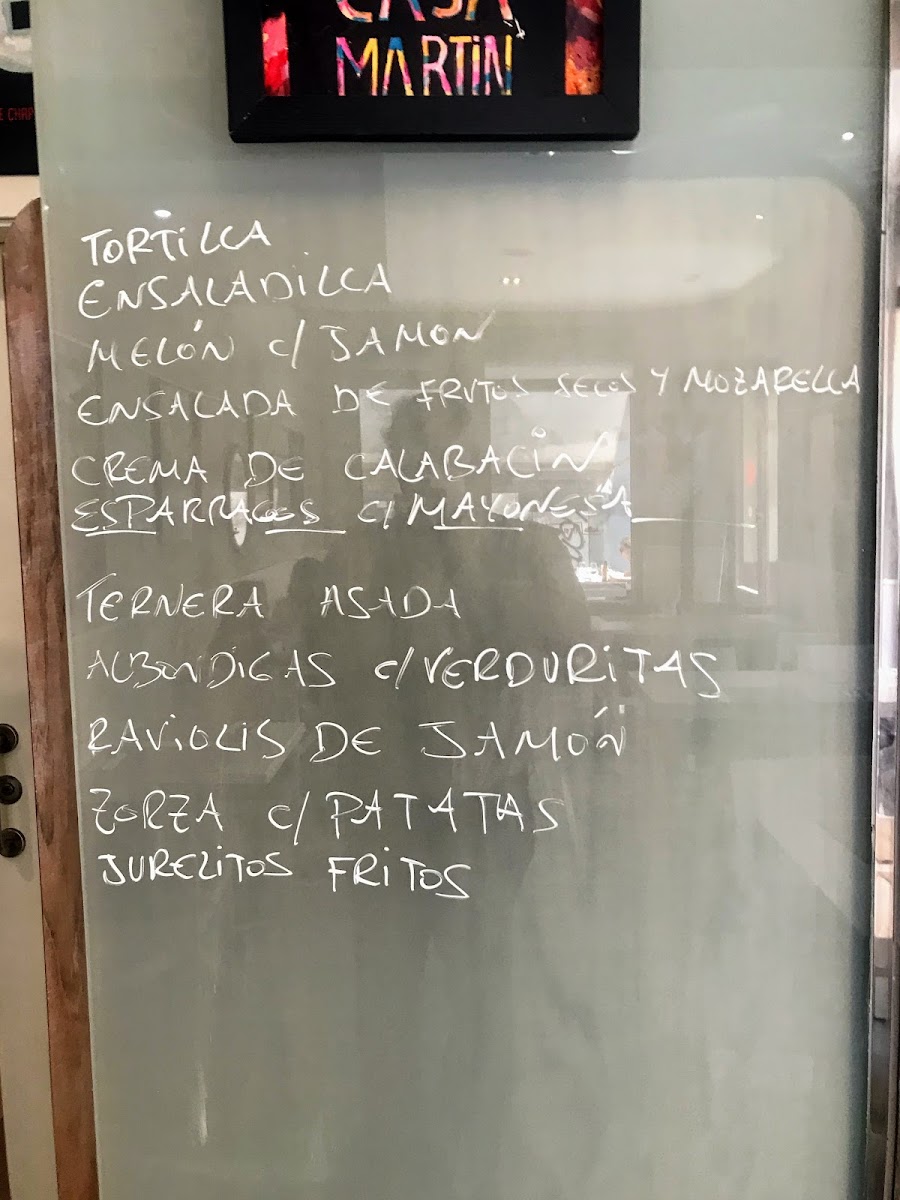 CASA
MARTIN
E CHAP
TORTILLA
ENSALADILLA
MELÓN c/ JAMON
ENSALADA DE FRUTOS SECOS Y MOZARELLA
CREMA DE CALABACÍN
ESPARRAGOS c/ MAYONESA
TERNERA ASADA
ALBONDIGAS c/ VERDURITAS
RAVIOLIS DE JAMÓN
ZORZA c/ PATATAS
JURELITOS FRITOS